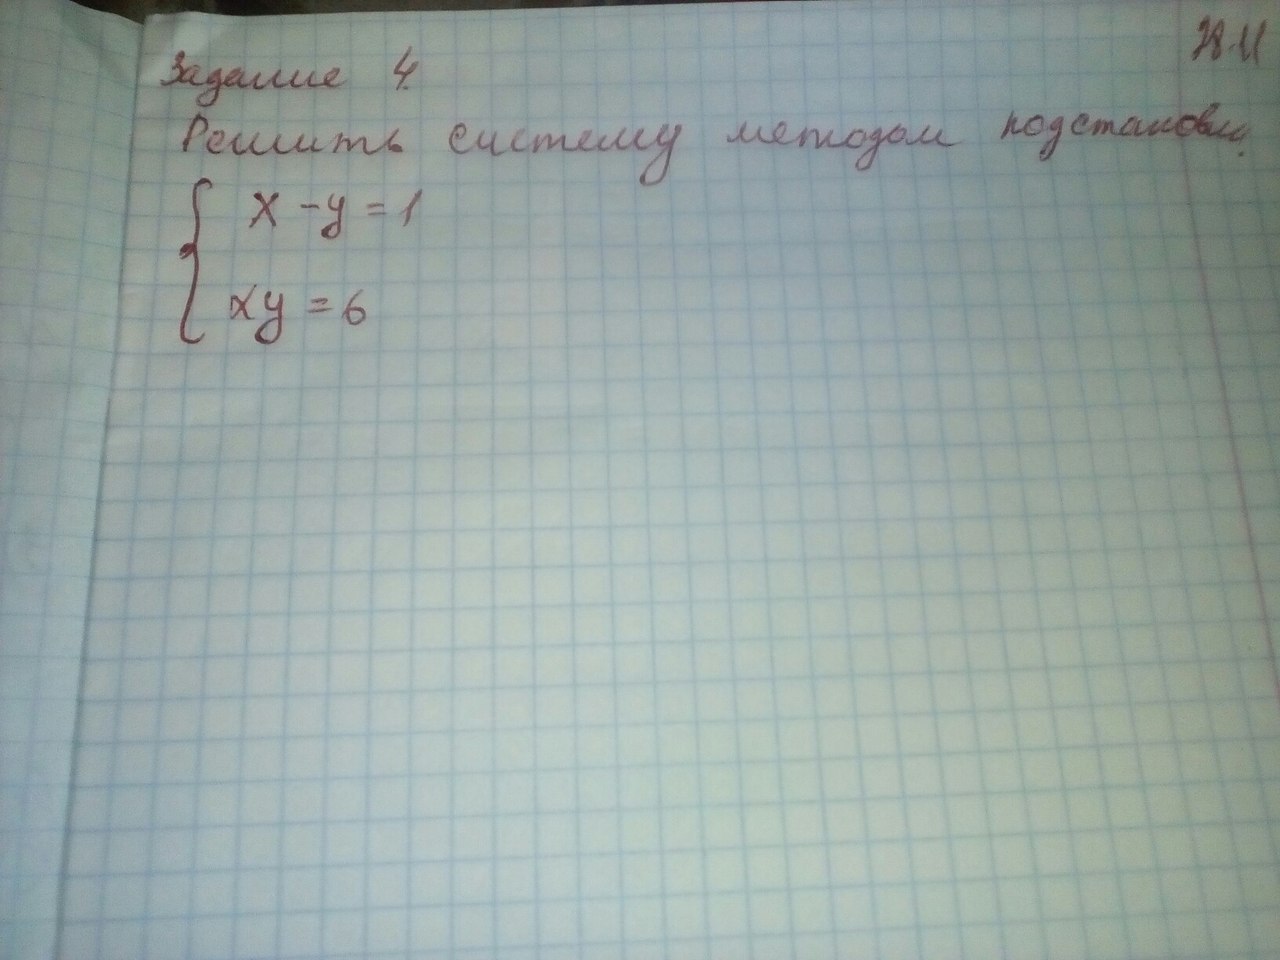 28.11
Задание 4.
Решить систему методом подстановки.
x - y = 1
xy = 6